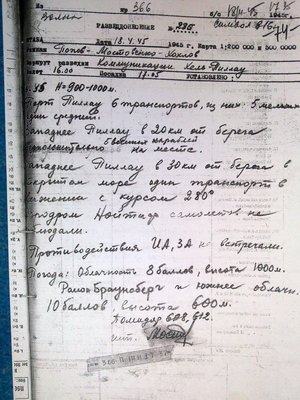 Волна
Нр 366
РАЗВЕДДОНЕСЕНИЕ № 225
Дата 18.4.45 1945 г. Карта 1:200 000 и 500000
Попов - Мостовенко - Хохлов
Маршрут разведки Коммуникации Хель Пиллау
16.00 Посадка 17.05 УСТАНОВЛЕНО:
H=900-1000м.
Порт Пиллау 6 транспортов, из них 5 мелких
один средний.
Западнее Пиллау в 20км от берега
5 на месте.
Западнее Пиллау в 30км от берега в
открытом море один транспорт в
движении с курсом 280°
Аэродром Нойтиф самолетов не
наблюдали.
Противодействия ИА, ЗА не встречали.
Погода: Облачность 8 баллов, высота 1000м.
Район Браунсберг и южнее облачн.
10 баллов высота 600м.
Командир